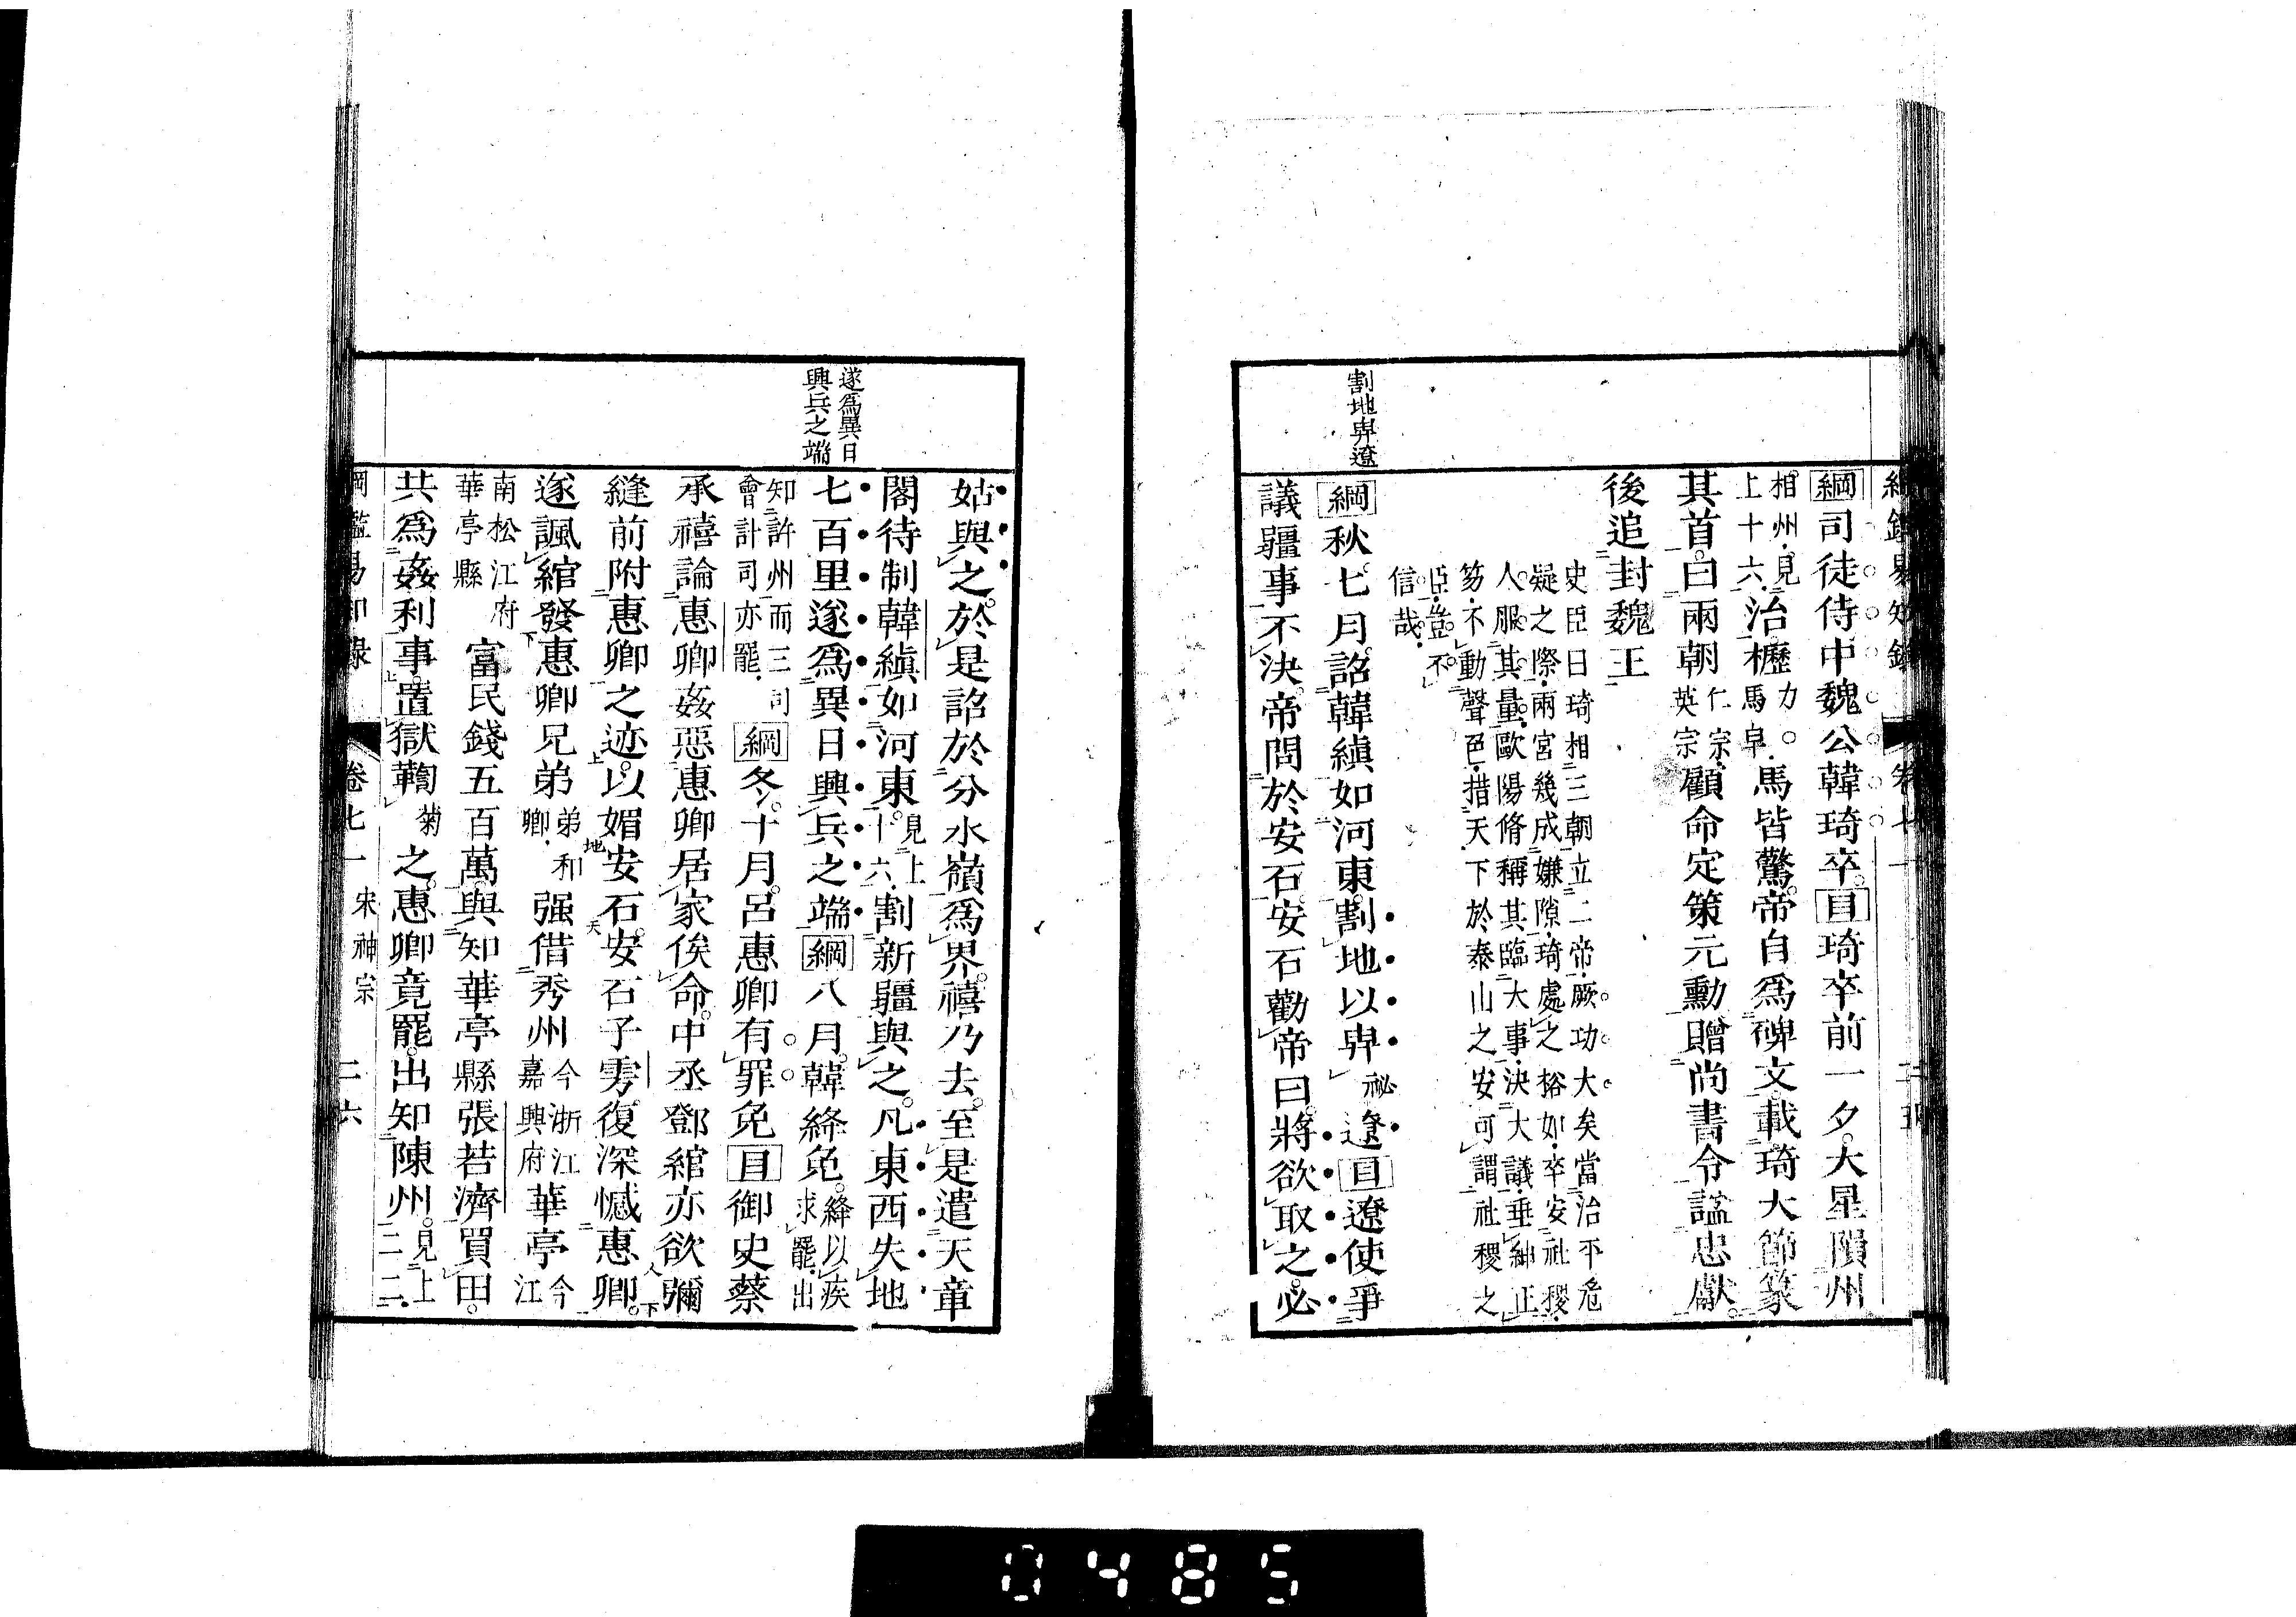 綱鑑易知錄 卷七一
割地畀遼
綱司徒侍中魏公韓琦卒。目琦卒前一夕。大星隕州
相州。見上十六。治。櫪力。馬皁。馬皆驚。帝自爲碑文。載琦大節。篆
其首。曰兩朝仁宗。英宗顧命定策元勳。贈尚書令。諡忠獻。
後追封魏王
史臣曰琦相三朝。立二帝。厥功大矣。當治平危
疑之際。兩宮幾成嫌隙。琦處之裕如。卒安社稷。
人服其量。歐陽脩稱其臨大事。決大議。垂紳正
笏。不動聲色。措天下於泰山之安。可謂社稷之
臣。豈不
信哉。
綱秋。七月。詔韓縝如河東。割地以畀祕遼。目遼使爭
議疆事不決。帝問於安石。安石勸帝曰。將欲取之。必
遂爲異日
興兵之端
姑與之。於是詔於分水嶺爲界。禧乃去。至是遣天章
閣待制韓縝如河東。見上十六割新疆與之。凡東西失地
七百里。遂爲異日興兵之端。綱八月。韓絳免。絳以疾求罷。出
知許州。而三司會計司亦罷。綱冬。十月。呂惠卿有罪免。目御史蔡
承禧論惠卿姦惡。惠卿居家俟命。中丞鄧綰亦欲彌
縫前附惠卿之迹。以媚安石。安石子雱。復深憾惠卿。
遂諷綰發惠卿兄弟弟和卿。强借秀州今浙江嘉興府華亭今江
南松江府華亭縣富民錢五百萬。與知華亭縣張若濟買田。
共爲姦利事。置獄鞫菊之。惠卿竟罷。出知陳州。見上二二。
綱鑑易知錄 卷七一 宋神宗 二六